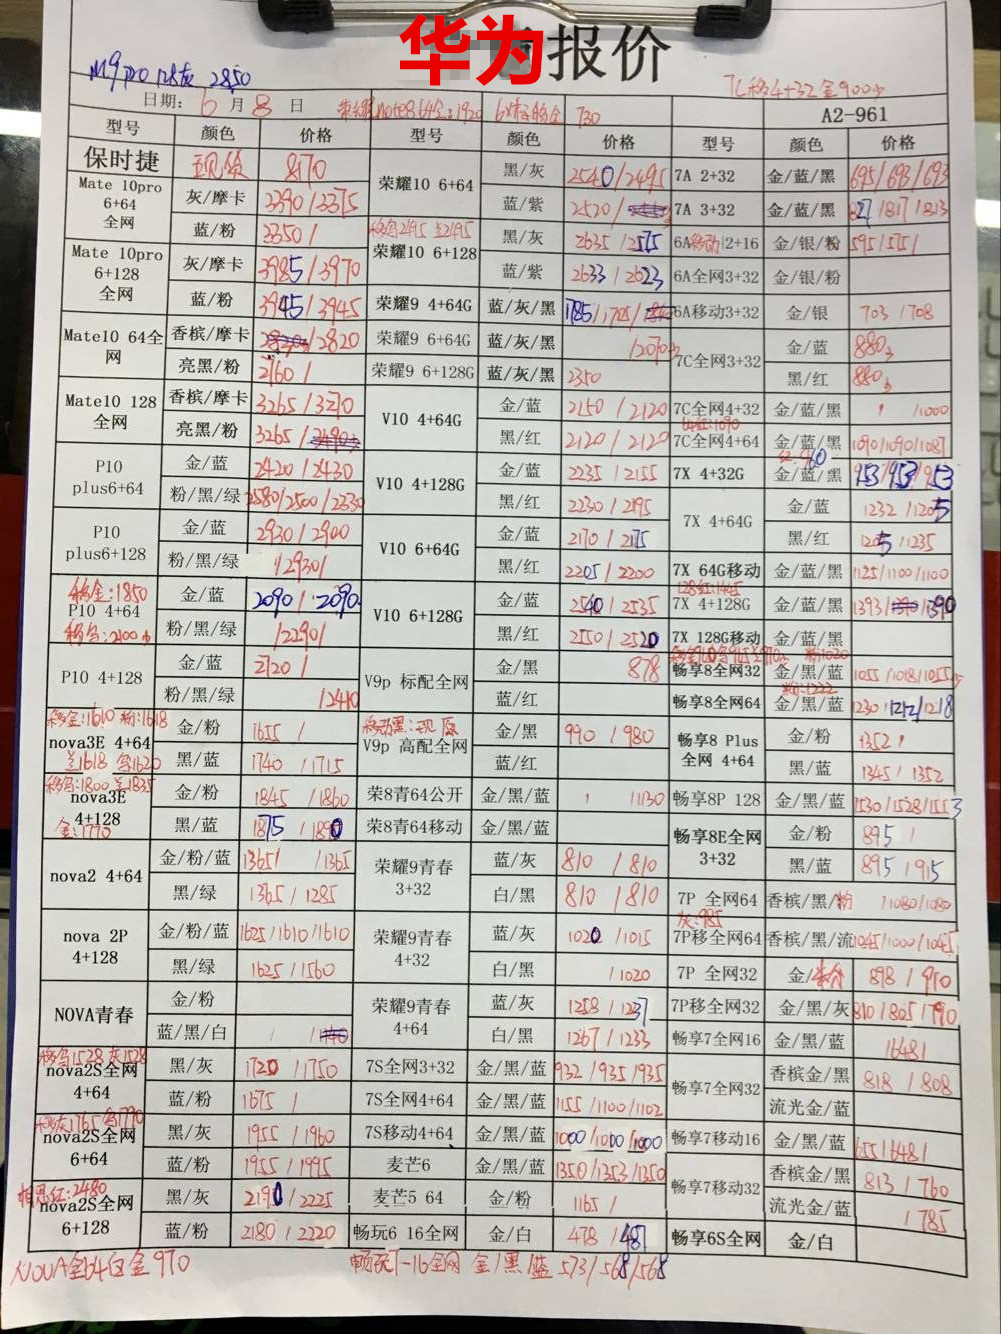 华为 报价
M9 pro 128灰 2850
7C移4+32金900
日期: 6 月 8 日 note8 64金:1920 6X标移金 730 A2-961
型号 颜色 价格 型号 颜色 价格 型号 颜色 价格
保时捷 现货 8170 荣耀10 6+64 黑/灰 2540/2495 7A 2+32 金/蓝/黑 695/693/693
Mate 10pro 6+64 全网 灰/摩卡 2390/2375 蓝/紫 2520/ 7A 3+32 金/蓝/黑 827/817/813
蓝/粉 2350/ 荣耀10 6+128 黑/灰 2635/2575 6A移动2+16 金/银/粉 595/575/
Mate 10pro 6+128 全网 灰/摩卡 3985/3970 蓝/紫 2633/2623 6A全网3+32 金/银/粉
蓝/粉 3945/3945 荣耀9 4+64G 蓝/灰/黑 1785/1705/ 6A移动3+32 金/银 703/708
Mate10 64全网 香槟/摩卡 /2820 荣耀9 6+64G 蓝/灰/黑 /2070 7C全网3+32 金/蓝 880
亮黑/粉 2160/ 荣耀9 6+128G 蓝/灰/黑 2350 黑/红 880
Mate10 128全网 香槟/摩卡 3265/3270 V10 4+64G 金/蓝 2150/2120 7C全网4+32 金/蓝/黑 /1000
亮黑/粉 3265/ 黑/红 2120/2120 7C全网4+64 金/蓝/黑 1090/1090/1087
P10 plus6+64 金/蓝 2420/2430 V10 4+128G 金/蓝 2235/2155 7X 4+32G 金/蓝/黑 953/953/953
粉/黑/绿 2580/2500/2330 黑/红 2230/2195 7X 4+64G 金/蓝 1232/1205
P10 plus6+128 金/蓝 2930/2900 V10 6+64G 金/蓝 2170/2175 黑/红 1205/1235
粉/黑/绿 /2930/ 黑/红 2205/2200 7X 64G移动 金/蓝/黑 1125/1100/1100
移金:1850 128红:1445
P10 4+64 金/蓝 2090/2090 V10 6+128G 金/蓝 2540/2535 7X 4+128G 金/蓝/黑 1393/ /1390
粉/黑/绿 /2290/ 黑/红 2550/2520 7X 128G移动 金/蓝/黑
P10 4+128 金/蓝 2720/ V9p 标配全网 金/黑 878 畅享8全网32 金/黑/蓝 1055/1018/1055
粉/黑/绿 /2440 蓝/红 畅享8全网64 金/黑/蓝 1230/1212/1218
移金:1610 粉:1618 粉:1222
nova3E 4+64 金/粉 1655/ V9p 高配全网 金/黑 990/980 畅享8 Plus 全网 4+64 金/粉 1352/
兰1618 乌1620 黑/蓝 1740/1715 蓝/红 黑/蓝 1345/1352
移乌:1800 兰1835
nova3E 4+128 金/粉 1845/1860 荣8青64公开 金/黑/蓝 /1130 畅享8P 128 1530/1528/1553
金:1770 黑/蓝 1875/1890 荣8青64移动 金/黑/蓝 畅享8E全网 3+32 金/粉 895/
nova2 4+64 金/粉/蓝 1365/ /1365 荣耀9青春 3+32 蓝/灰 810/810 黑/蓝 895/915
黑/绿 1365/1285 白/黑 810/810 7P 全网64 香槟/黑/粉 /1080/1080
灰:985
nova 2P 4+128 金/粉/蓝 1625/1610/1610 荣耀9青春 4+32 蓝/灰 1020/1015 7P移全网64 香槟/黑/流 1045/1000/1045
黑/绿 1625/1560 白/黑 /1020 7P 全网32 金/粉 898/990
NOVA青春 金/粉 荣耀9青春 4+64 蓝/灰 1258/1237 7P移全网32 金/黑/灰 810/805/790
蓝/黑/白 白/黑 1267/1233 畅享7全网16 金/黑/蓝 /648/
移乌1528 灰1528
nova2S全网 4+64 黑/灰 1720/1750 7S全网3+32 金/黑/蓝 932/935/935 畅享7全网32 香槟金/黑 818/808
蓝/粉 1675/ 7S全网4+64 金/黑/蓝 1155/1100/1102 流光金/蓝
移灰1765 乌1770
nova2S全网 6+64 黑/灰 1955/1960 7S移动4+64 金/黑/蓝 1000/1000/1000 畅享7移动16 金/黑/蓝 655/648/
蓝/粉 1955/1995 麦芒6 金/黑/蓝 1350/1353/1350 畅享7移动32 香槟金/黑 813/760
相思红:2480
nova2S全网 6+128 黑/灰 2190/2225 麦芒5 64 金/粉 1165/ 流光金/蓝 /785
蓝/粉 2180/2220 畅玩6 16全网 金/白 478/487 畅享6S全网 金/白
NOVA全64白金970 畅玩7-16全网 金/黑/蓝 573/568/568